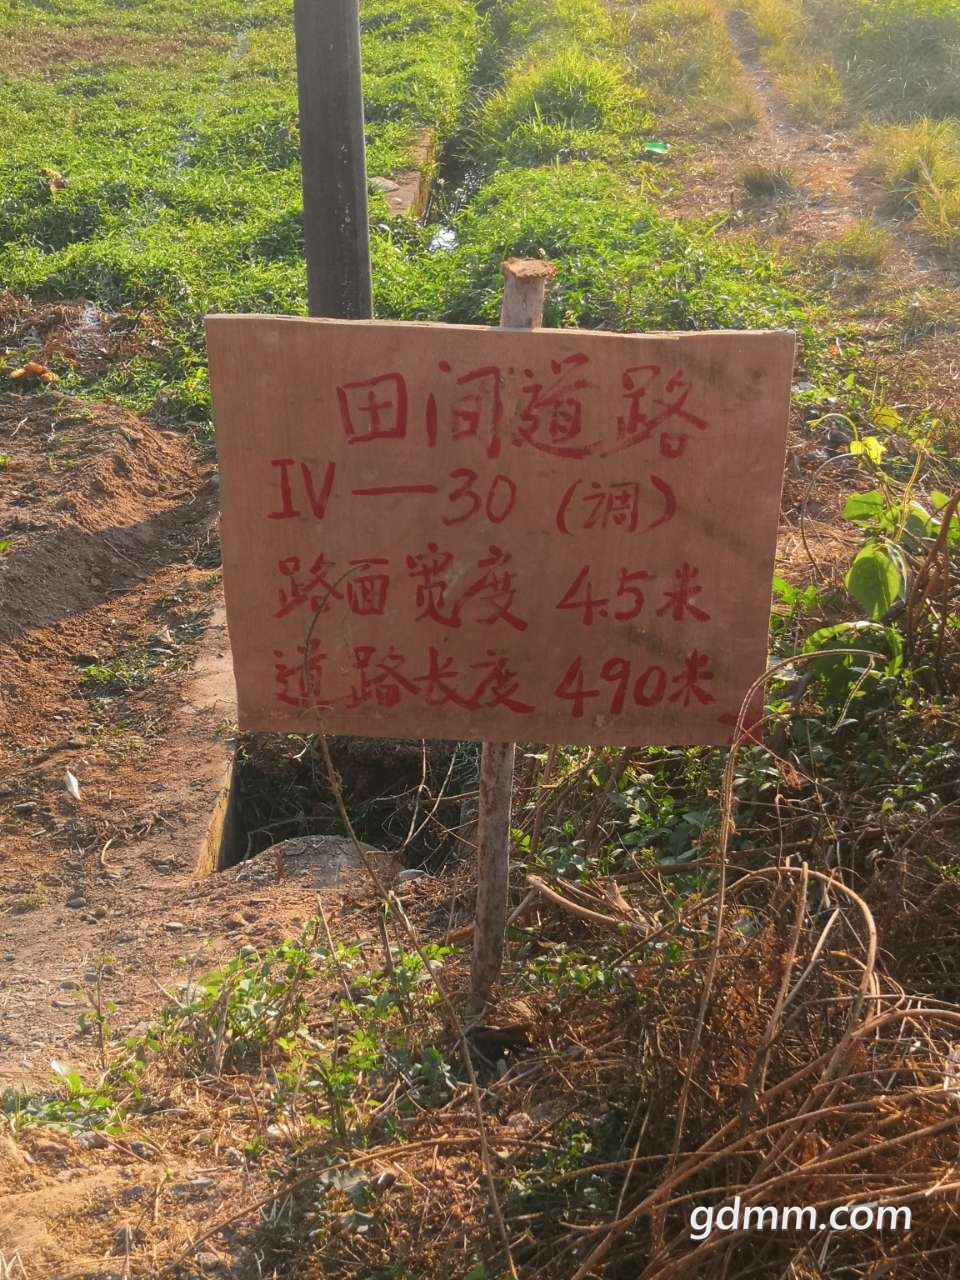 田间道路
IV—30（调）
路面宽度 4.5米
道路长度 490米
gdmm.com